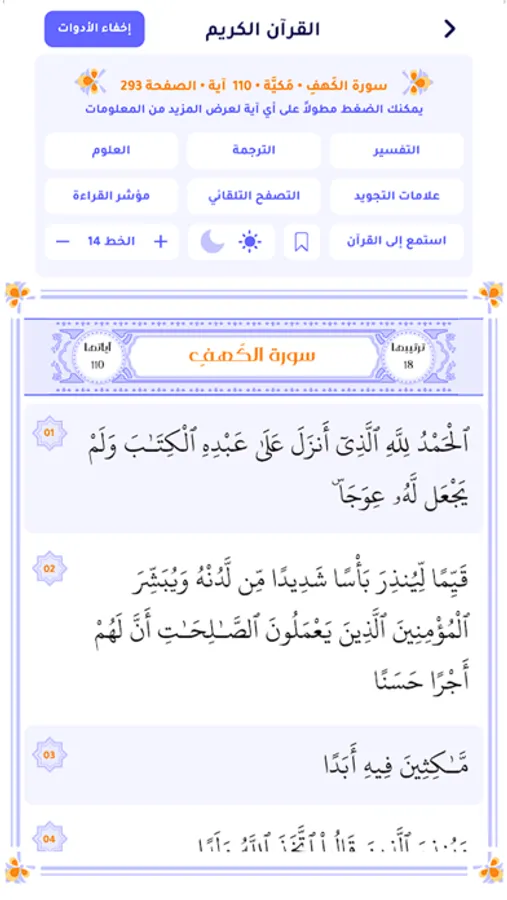 القرآن الكريم
إخفاء الأدوات
سورة الكَهفِ • مَكيَّة • 110 آية • الصفحة 293
يمكنك الضغط مطولاً على أي آية لعرض المزيد من المعلومات
التفسير
الترجمة
العلوم
علامات التجويد
التصفح التلقائي
مؤشر القراءة
استمع إلى القرآن
+ الخط 14 −
ترتيبها
18
سورة الكَهفِ
آياتها
110
01
ٱلْحَمْدُ لِلَّهِ ٱلَّذِىٓ أَنزَلَ عَلَىٰ عَبْدِهِ ٱلْكِتَـٰبَ وَلَمْ
يَجْعَل لَّهُۥ عِوَجَاۜ
02
قَيِّمًا لِّيُنذِرَ بَأْسًا شَدِيدًا مِّن لَّدُنْهُ وَيُبَشِّرَ
ٱلْمُؤْمِنِينَ ٱلَّذِينَ يَعْمَلُونَ ٱلصَّـٰلِحَـٰتِ أَنَّ لَهُمْ
أَجْرًا حَسَنًا
03
مَّـٰكِثِينَ فِيهِ أَبَدًا
04